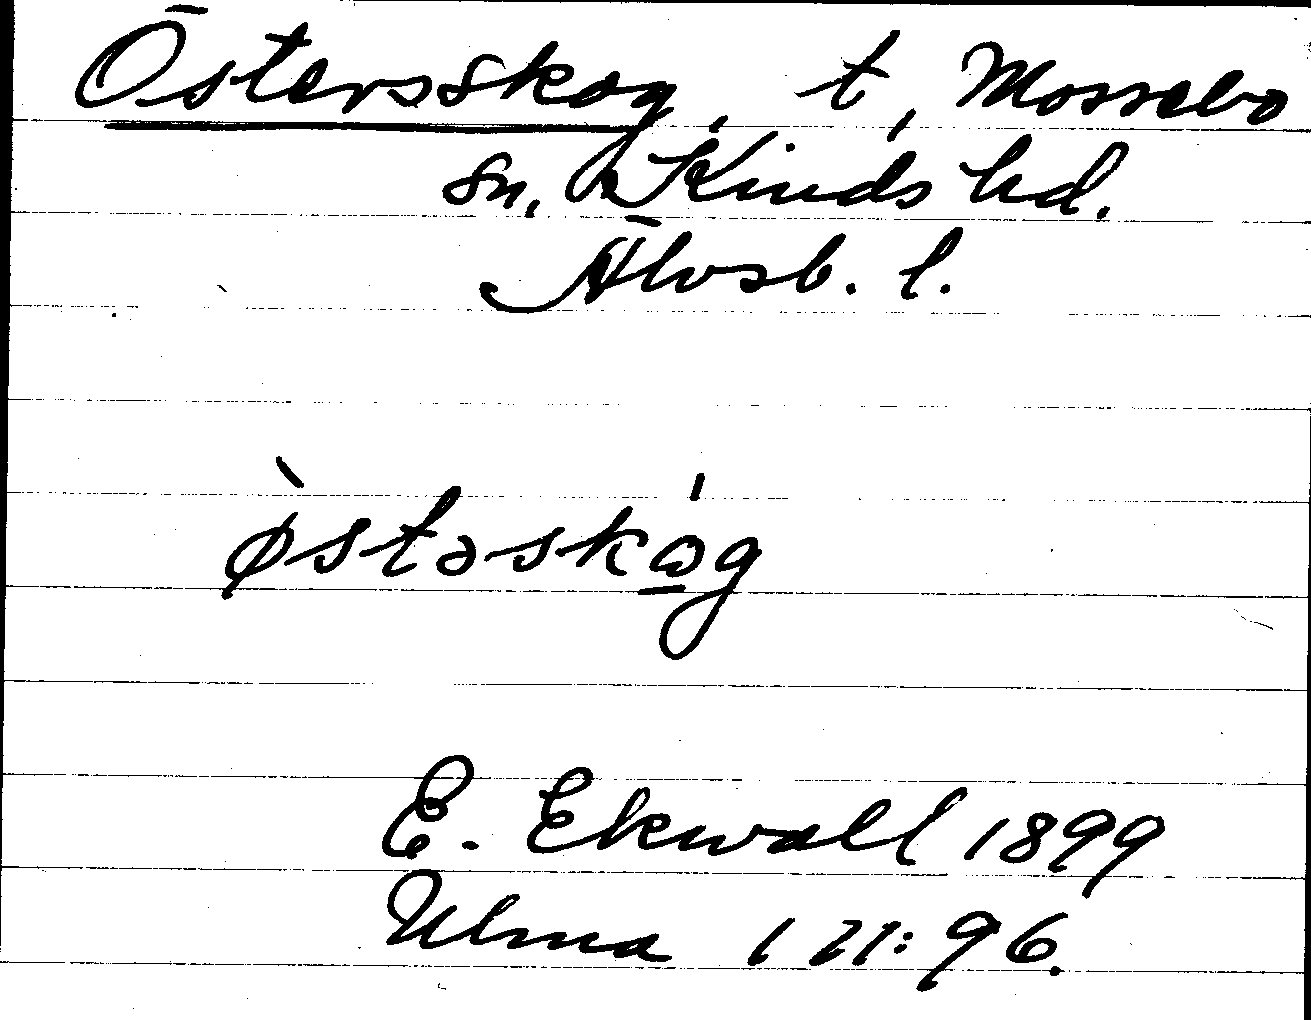 Östersskog, t, Mossebo
sn, Kinds hd.
Älvsb. l.
ø̀stəskó̱g
E. Ekwall 1899
Ulma 1 21:96.